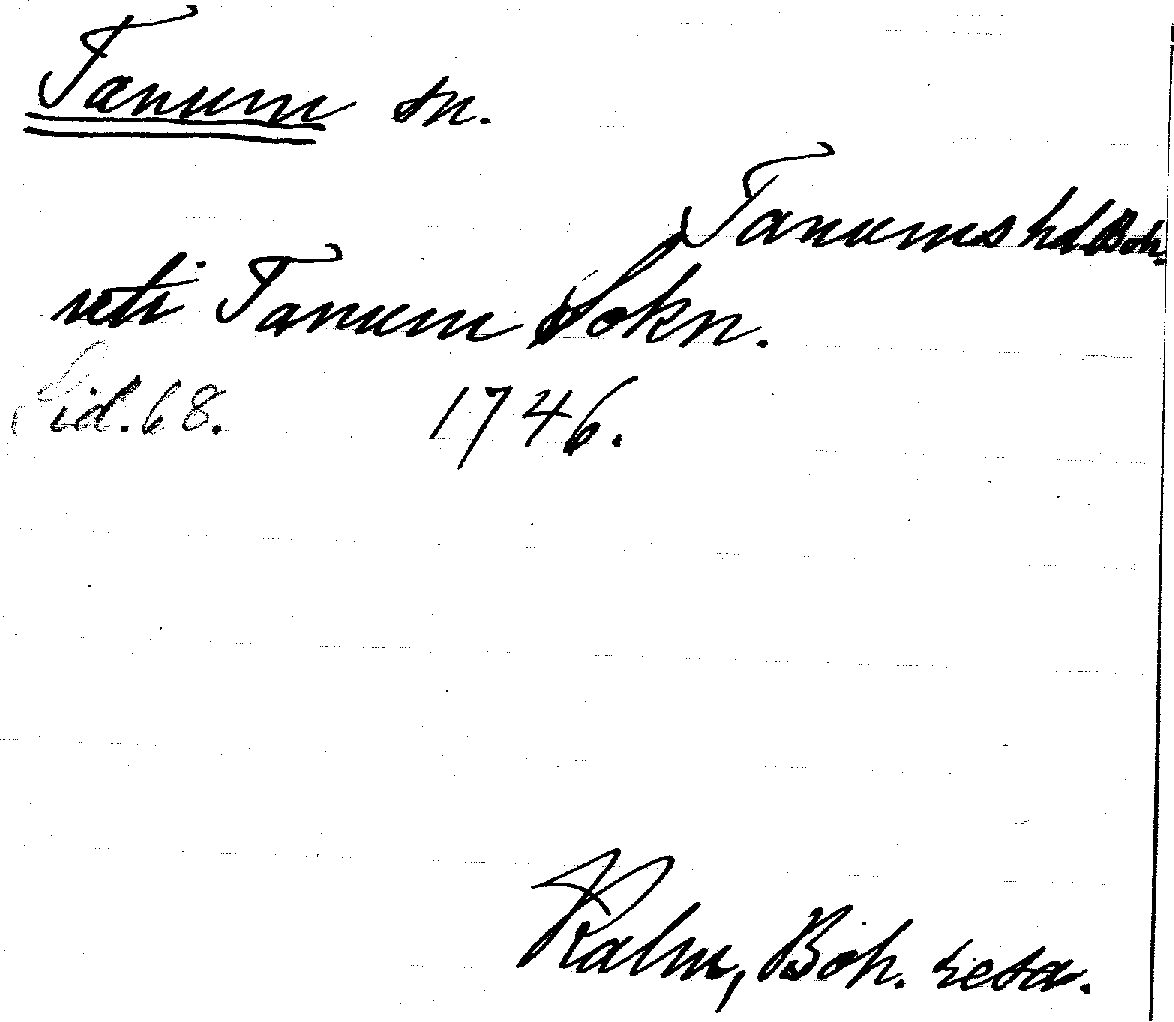 Tanum sn.
Tanums hd Boh.
uti Tanum Sokn.
Sid. 68. 1746.
Kalm, Boh. resa.